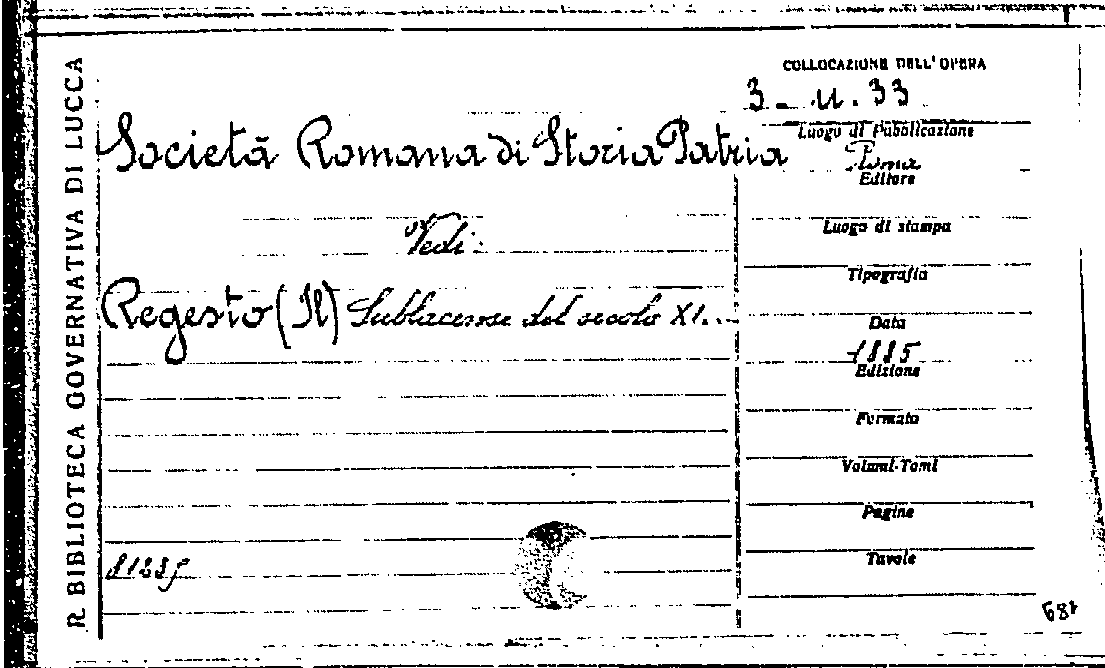 R. BIBLIOTECA GOVERNATIVA DI LUCCA
COLLOCAZIONE DELL'OPERA
3 - u. 33
Società Romana di Storia Patria
Luogo di Pubblicazione
Roma
Editore
Vedi:
Luogo di stampa
Tipografia
Regesto (Il) Sublacense del secolo XI...
Data
1885
Edizione
Formato
Volumi-Tomi
Pagine
Tavole